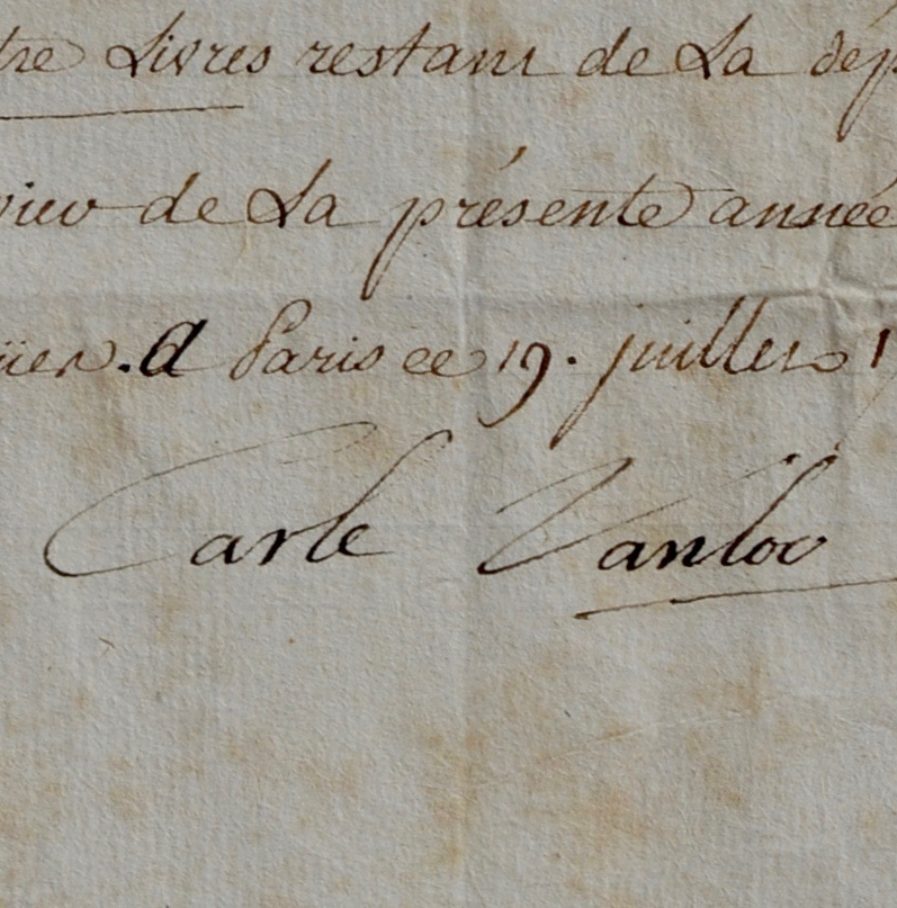 tre Livres restant de La dép
de La présente année
. A Paris ce 19. juillet 1
Carle Vanloo